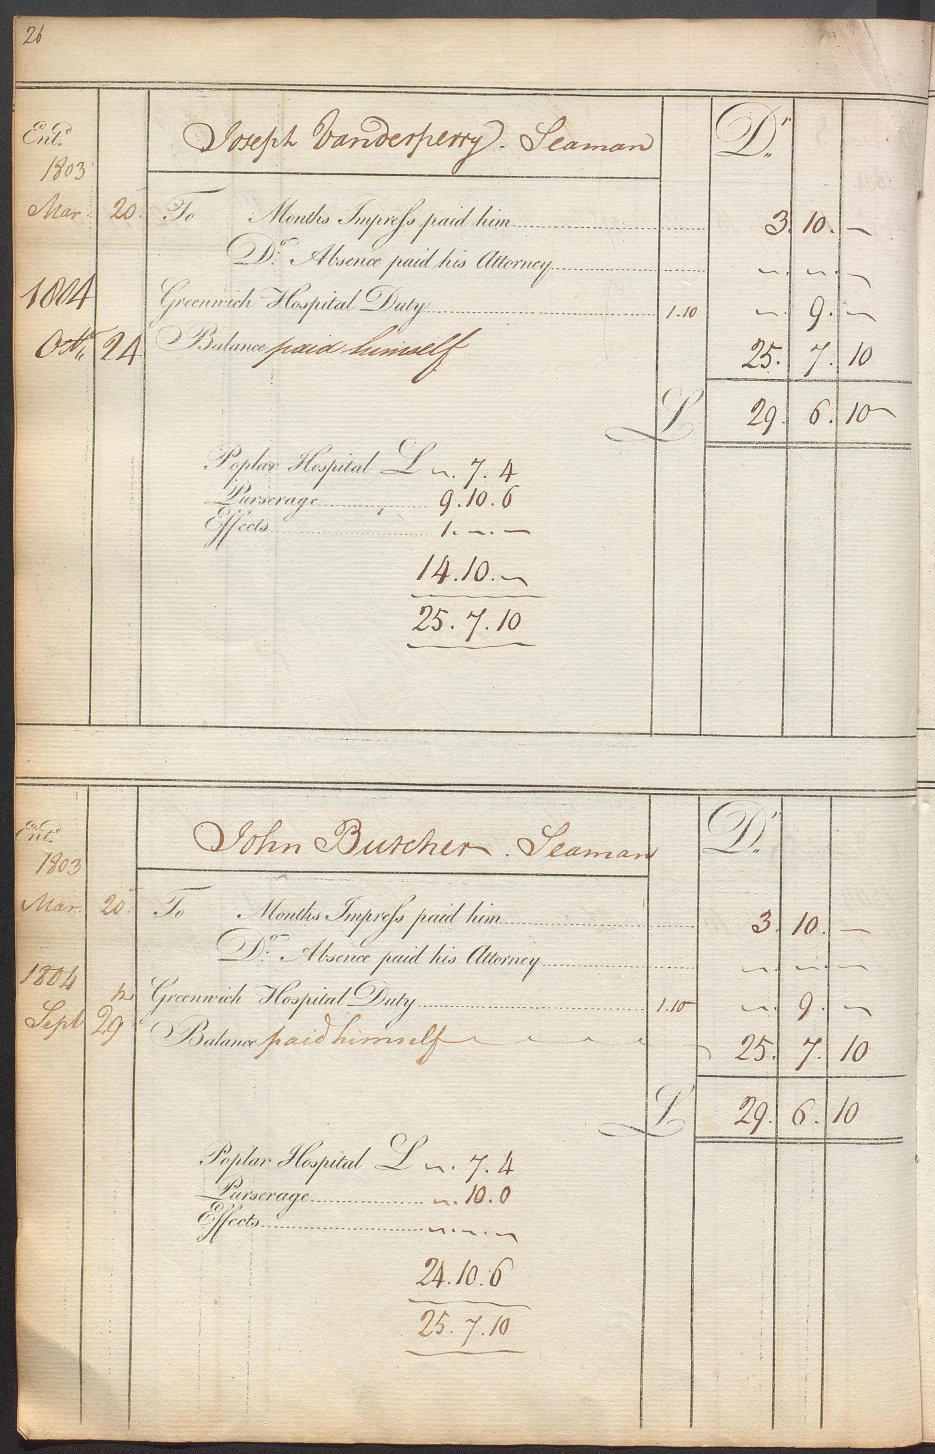 26
Entd. Joseph Vanderperry. Seaman Dr.
1803
Mar. 20. To Months Impress paid him 3. 10. —
Do. Absence paid his Attorney —. —. —
1804 Greenwich Hospital Duty 1.10 —. 9. —
Octr. 24 Balance paid himself 25. 7. 10
L 29. 6. 10
Poplar Hospital L —. 7. 4
Purserage 9. 10. 6
Effects 1. —. —
14. 10. —
25. 7. 10
Entd. John Butcher. Seaman Dr.
1803
Mar. 20. To Months Impress paid him 3. 10. —
Do. Absence paid his Attorney —. —. —
1804 Greenwich Hospital Duty 1.10 —. 9. —
Sept 29 Balance paid himself 25. 7. 10
L 29. 6. 10
Poplar Hospital L —. 7. 4
Purserage —. 10. 0
Effects —. —. —
24. 10. 6
25. 7. 10